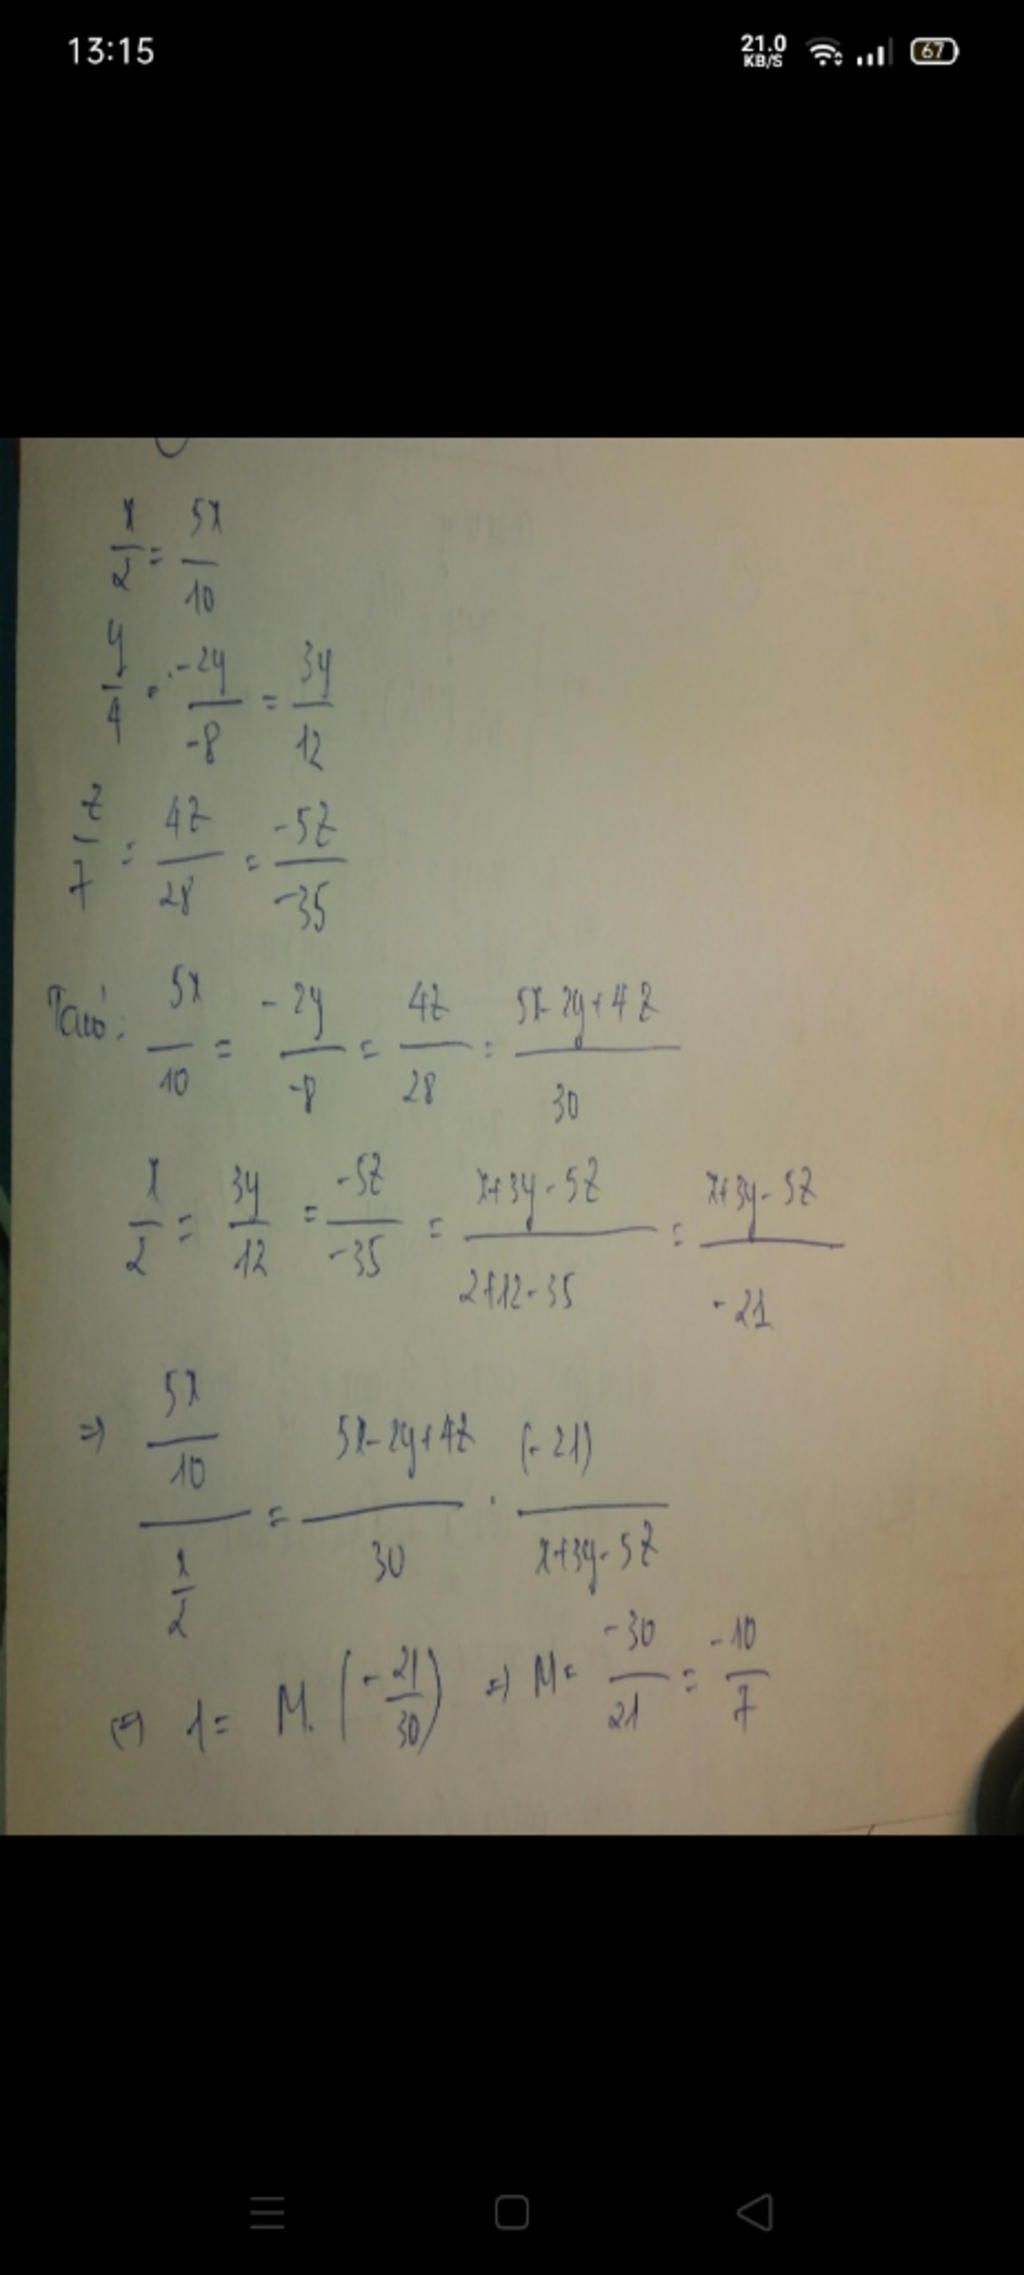 13:15
21.0 KB/S 67
x/2 = 5x/10
y/4 = -2y/-8 = 3y/12
z/7 = 4z/28 = -5z/-35
Ta có: 5x/10 = -2y/-8 = 4z/28 = 5x-2y+4z/30
x/2 = 3y/12 = -5z/-35 = x+3y-5z/2+12-35 = x+3y-5z/-21
=> 5x/10/x/2 = 5x-2y+4z/30 . (-21)/x+3y-5z
(=) 1 = M. (-21/30) => M = -30/21 = -10/7